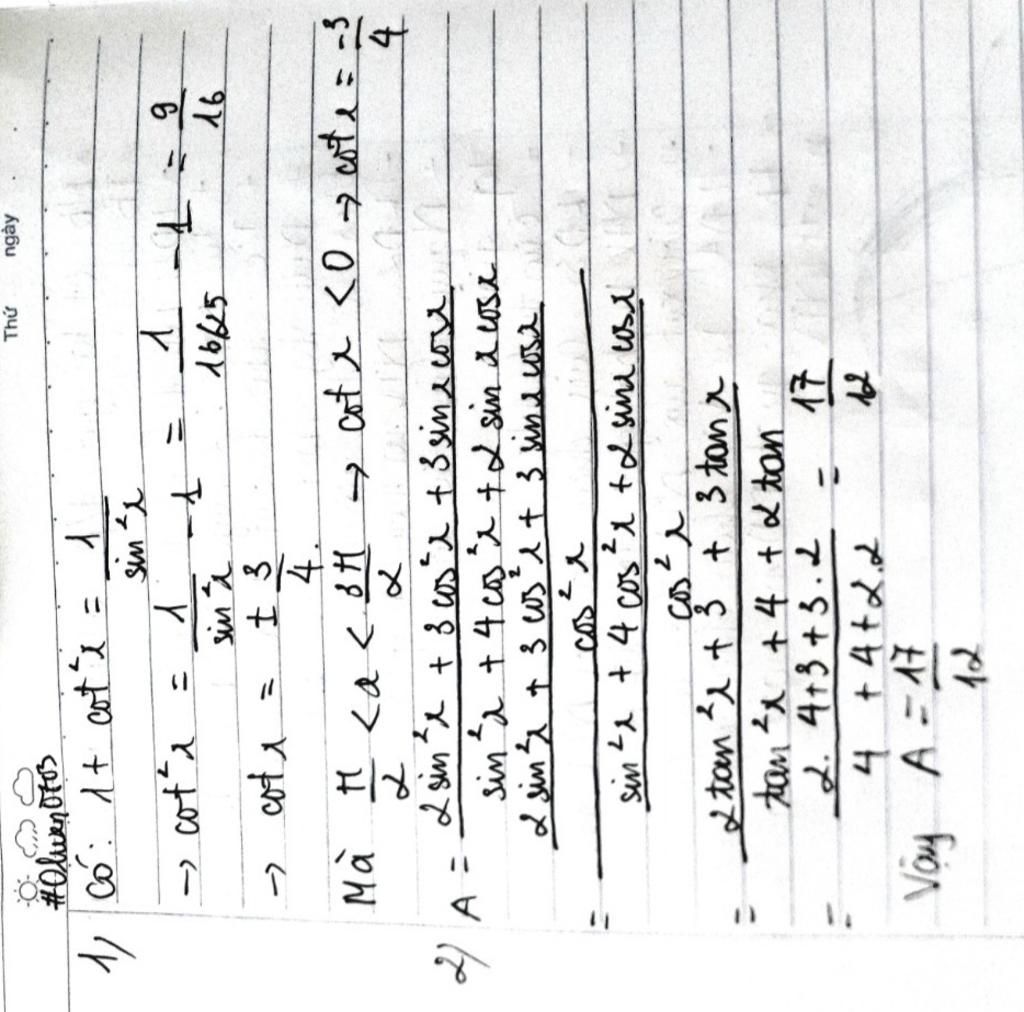 Thứ ngày
#QluanDf03
1) Có: 1 + cot²x = 1/sin²x
→ cot²x = 1/sin²x - 1 = 1/16/25 - 1 = 9/16
→ cot x = ± 3/4.
Mà π/2 < x < 3π/2 → cot x < 0 → cot x = -3/4
2) A = (2 sin²x + 3 cos²x + 3 sin x cos x)/(sin²x + 4 cos²x + 2 sin x cos x)
= ((2 sin²x + 3 cos²x + 3 sin x cos x)/cos²x)/((sin²x + 4 cos²x + 2 sin x cos x)/cos²x)
= (2 tan²x + 3 + 3 tan x)/(tan²x + 4 + 2 tan)
= (2. 4 + 3 + 3. 2)/(4 + 4 + 2.2) = 17/12
Vậy A = 17/12